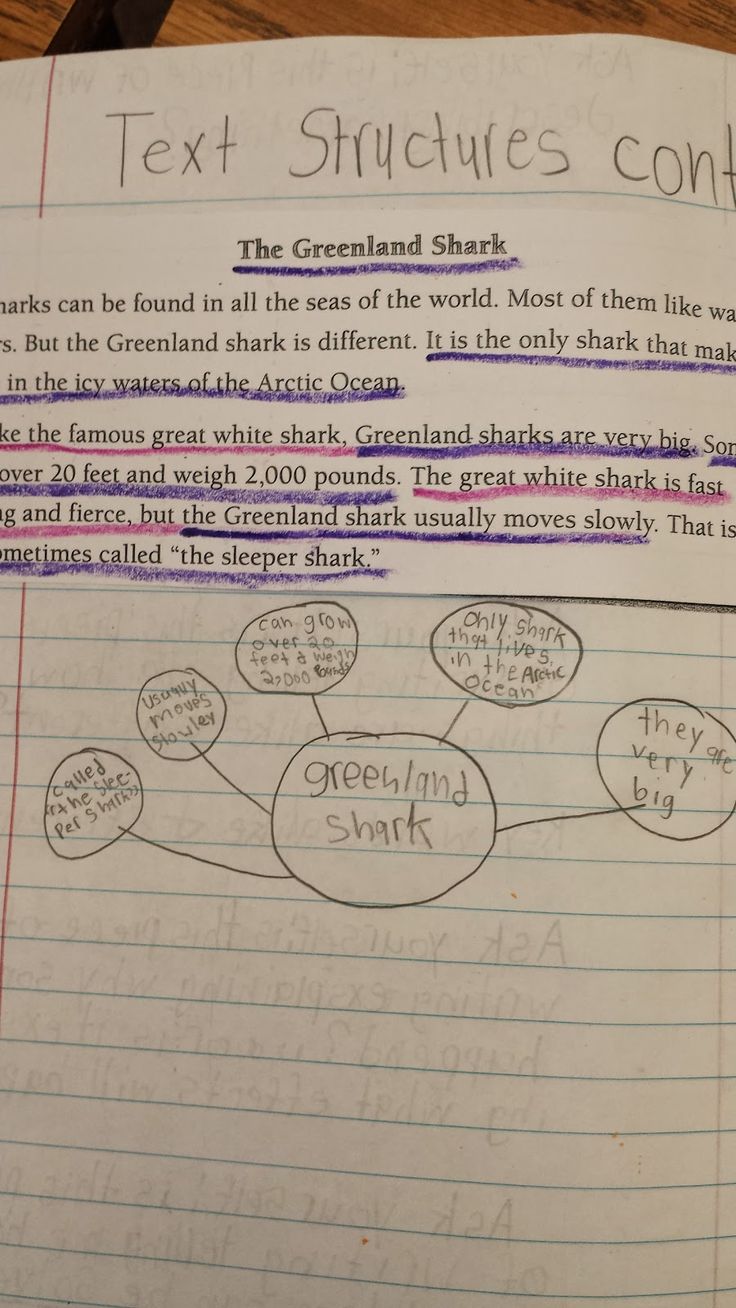 Text Structures cont
The Greenland Shark
harks can be found in all the seas of the world. Most of them like wa
rs. But the Greenland shark is different. It is the only shark that mak
in the icy waters of the Arctic Ocean.
ke the famous great white shark, Greenland sharks are very big. Som
over 20 feet and weigh 2,000 pounds. The great white shark is fast
ng and fierce, but the Greenland shark usually moves slowly. That is
ometimes called “the sleeper shark.”
can grow
over 20
feet & weigh
2,000 Pounds
only shark
that lives
in the Arctic
ocean
usually
moves
slowley
they are
very
big
called
"the slee-
per shark"
greenland
shark